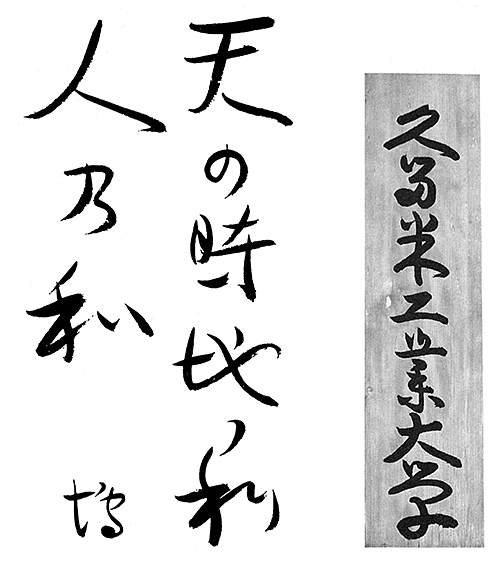 久留米工業大学
天の時地ノ利
人乃和